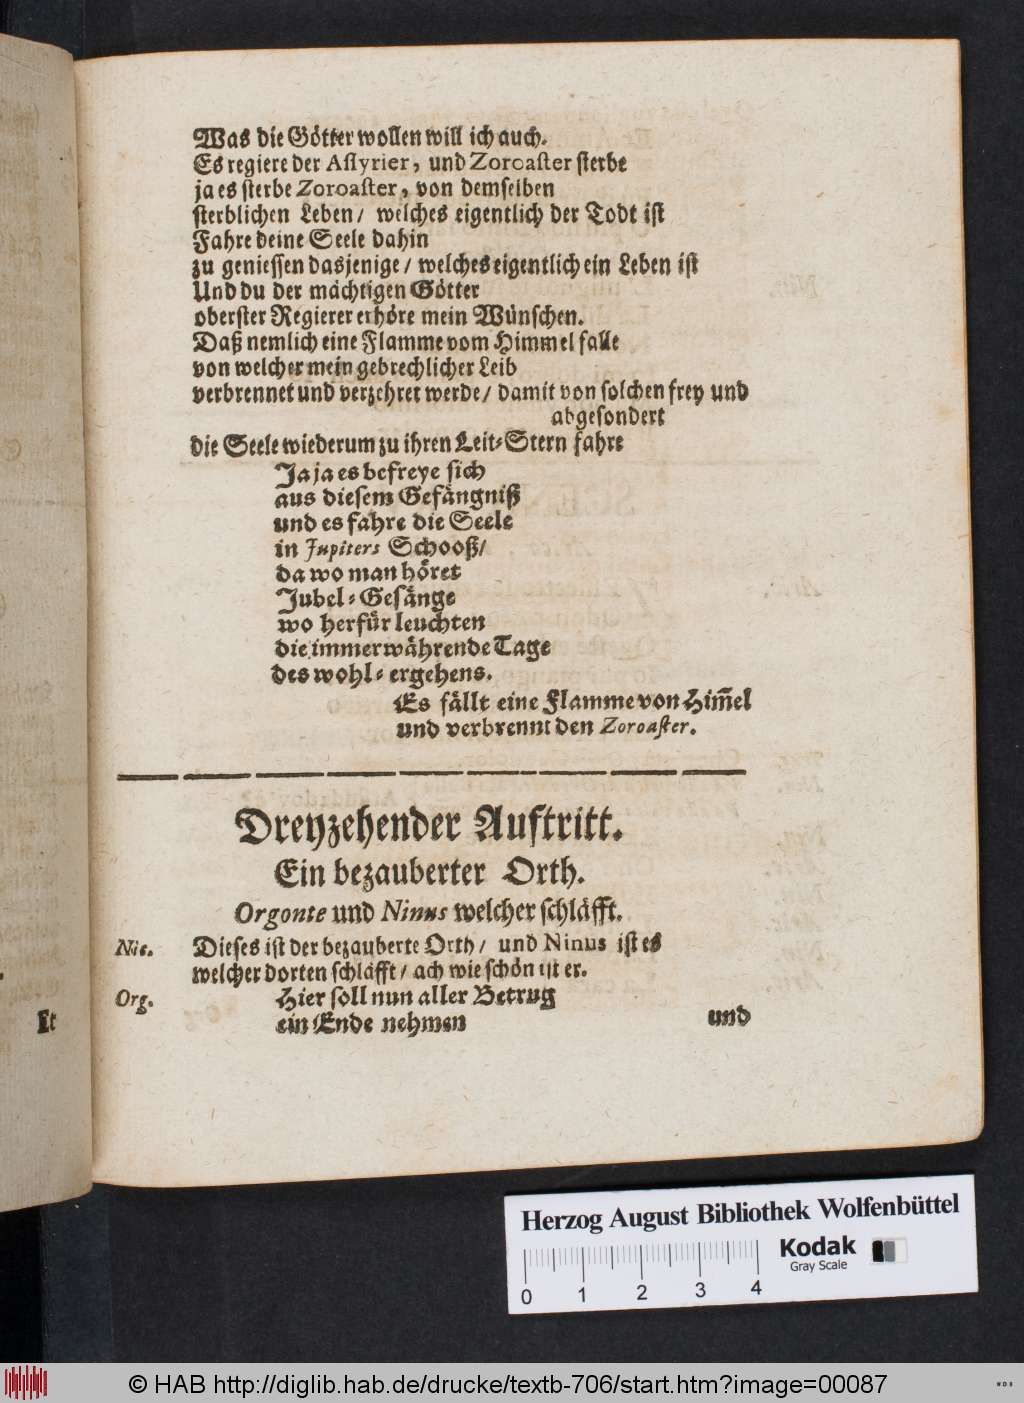 Was die Götter wollen will ich auch.
Es regiere der Assyrier, und Zoroaster sterbe
ja es sterbe Zoroaster, von demselben
sterblichen Leben/ welches eigentlich der Todt ist
Fahre deine Seele dahin
zu geniessen dasjenige/ welches eigentlich ein Leben ist
Und du der mächtigen Götter
oberster Regierer erhöre mein Wünschen.
Daß nemlich eine Flamme vom Himmel falle
von welcher mein gebrechlicher Leib
verbrennet und verzehret werde/ damit von solchen frey und
abgesondert
die Seele wiederum zu ihren Leit-Stern fahre
Ja ja es befreye sich
aus diesem Gefängniß
und es fahre die Seele
in Jupiters Schooß/
da wo man höret
Jubel-Gesänge
wo herfür leuchten
die immerwährende Tage
des wohl-ergehens.
Es fällt eine Flamme von Him̃el
und verbrennt den Zoroaster.
Dreyzehender Auftritt.
Ein bezauberter Orth.
Orgonte und Ninus welcher schläfft.
Nic. Dieses ist der bezauberte Orth/ und Ninus ist es
welcher dorten schläfft/ ach wie schön ist er.
Org. Hier soll nun aller Betrug
ein Ende nehmen
und
Herzog August Bibliothek Wolfenbüttel
Kodak
Gray Scale
0 1 2 3 4
© HAB http://diglib.hab.de/drucke/textb-706/start.htm?image=00087